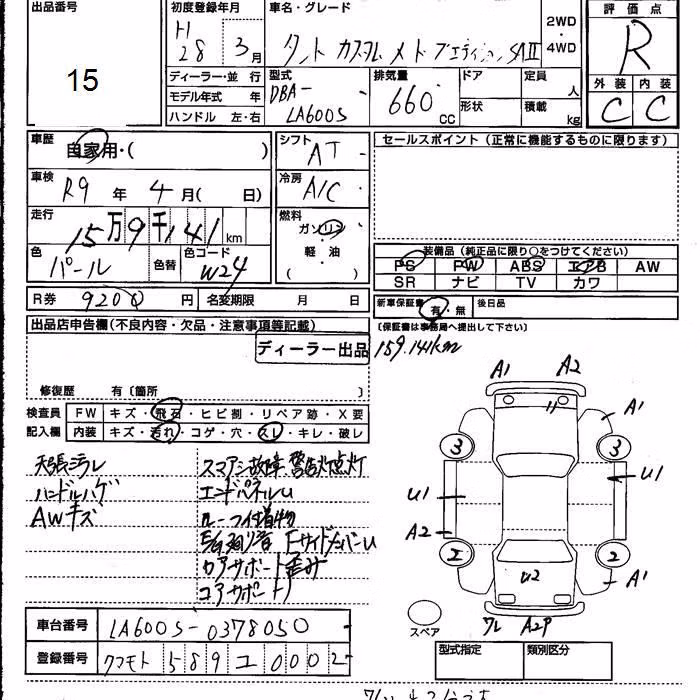 出品番号
15
初度登録年月
H 28 3月
車名・グレード
タント カスタム X トップエディション SAⅡ
2WD
・
4WD
評価点
R
外装 内装
C C
ディーラー・並 行
モデル年式 年
ハンドル 左・右
型式
DBA-
LA600S
排気量
660 CC
ドア
形状
定員
人
積載
kg
車歴
自家用・( )
車検
R9 年 4 月( 日)
走行
15万9千141 km
色
パール
色替
色コード
W24
R券 9200 円 名変期限 月 日
シフト
AT
冷房
A/C
燃料
ガソリン
・
軽・油
( )
セールスポイント(正常に機能するものに限ります)
装備品(純正品に限り○をつけてください)
PS PW ABS エアB AW
SR ナビ TV カワ
新車保証書 有・無 後日品
〔保証書は事務局へ提出して下さい〕
159.141km
出品店申告欄(不良内容・欠品・注意事項等記載)
ディーラー出品
修復歴 有〔箇所 〕
検査員 FW キズ・飛石・ヒビ割・リペア跡・X要
記入欄 内装 キズ・汚れ・コゲ・穴・スレ・キレ・破レ
天張ミラレ
ハンドルハゲ
AWキズ
スマアシ故障 警告灯点灯
エンドパネルU
ルーフ付着物
コアサポート歪み
コアサポート
A1 A2
A1
3 3
U1 U1
A2
2 2
A1
U2
ワレ A2P
スペア
型式指定 類別区分
車台番号 LA600S-0378050
登録番号 クマモト 589 ユ 0002